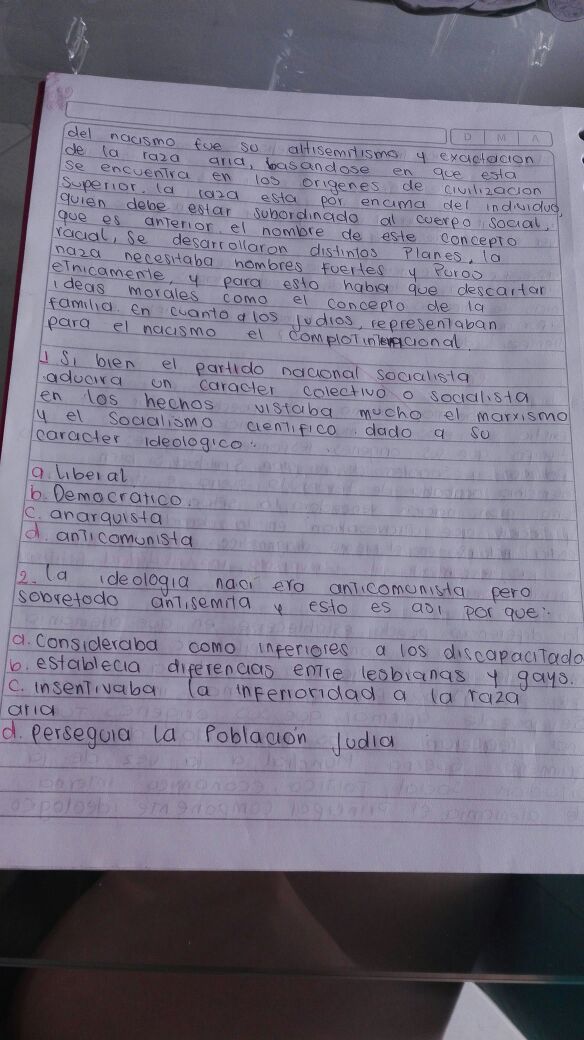 D M A
del nacismo fue su altisemitismo y exactacion
de la raza aria, basandose en que esta
se encuentra en los origenes de civilizacion
superior. la raza esta por encima del individuo,
quien debe estar subordinado al cuerpo social,
que es anterior. el nombre de este concepto
racial, se desarrollaron distintos Planes, la
naza necesitaba hombres fuertes y Puros
etnicamente, y para esto habia que descartar
ideas morales como el concepto de la
familia. en cuanto a los Judios, representaban
para el nacismo el complot internacional.
1. Si bien el partido nacional socialista
aducira un caracter colectivo o socialista
en los hechos vistaba mucho el marxismo
y el Socialismo cientifico. dado a su
caracter ideologico:
a. liberal
b. Democratico.
c. anarquista
d. anticomunista
2. la ideologia naci era anticomunista pero
sobretodo antisemita y esto es asi por que:
a. Consideraba como inferiores a los discapacitado
b. establecia diferencias entre lesbianas y gays.
c. insentivaba la inferioridad a la raza
aria
d. perseguia la Poblacion Judia